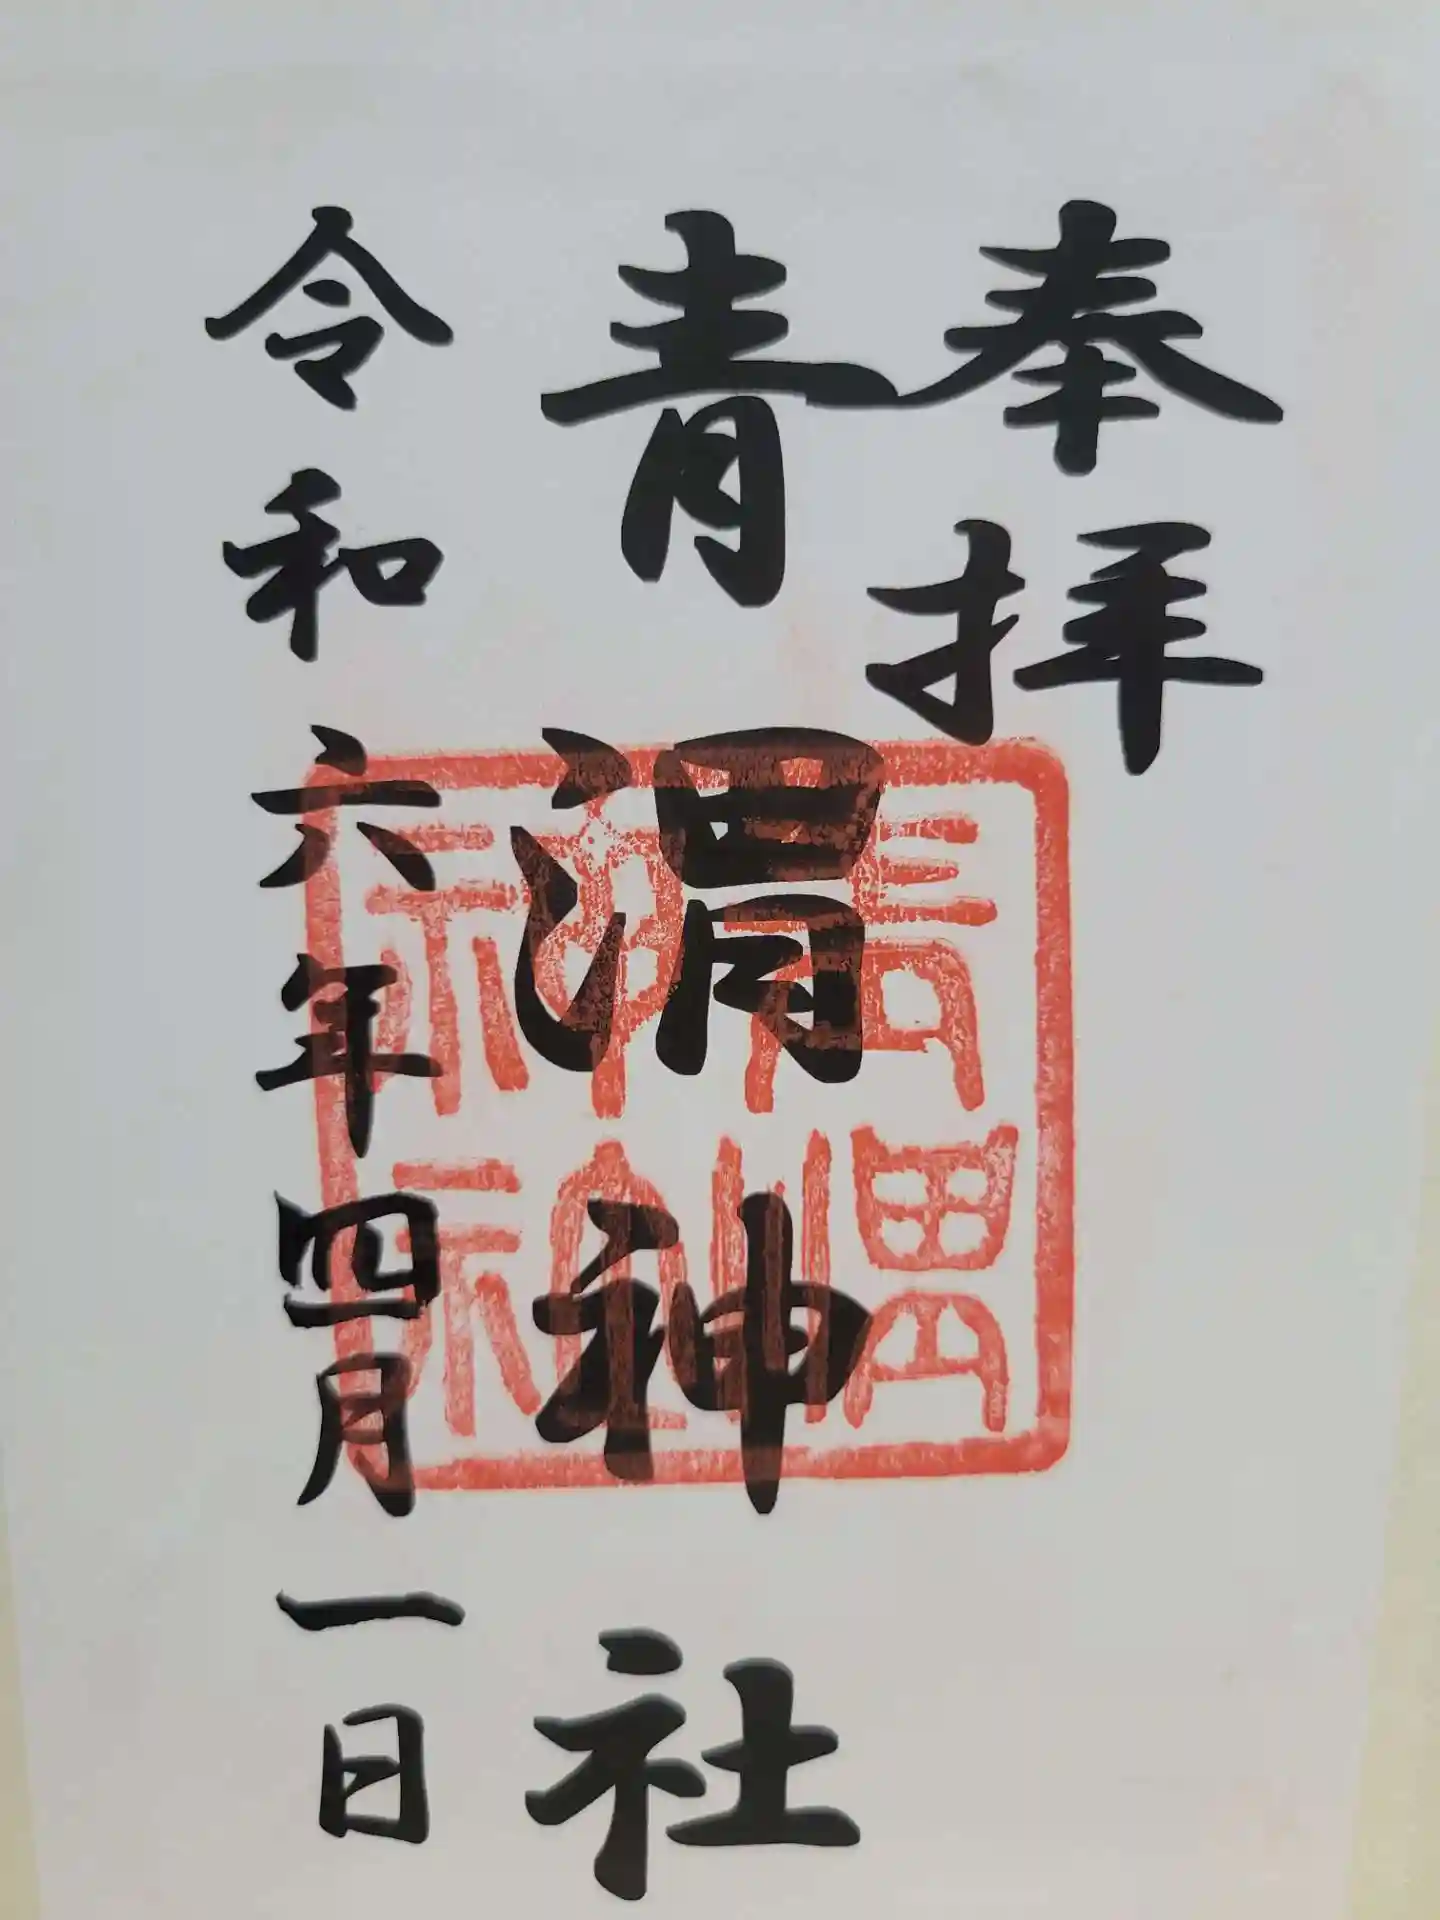 奉拝
青渭神社
令和六年四月一日
青渭
神社